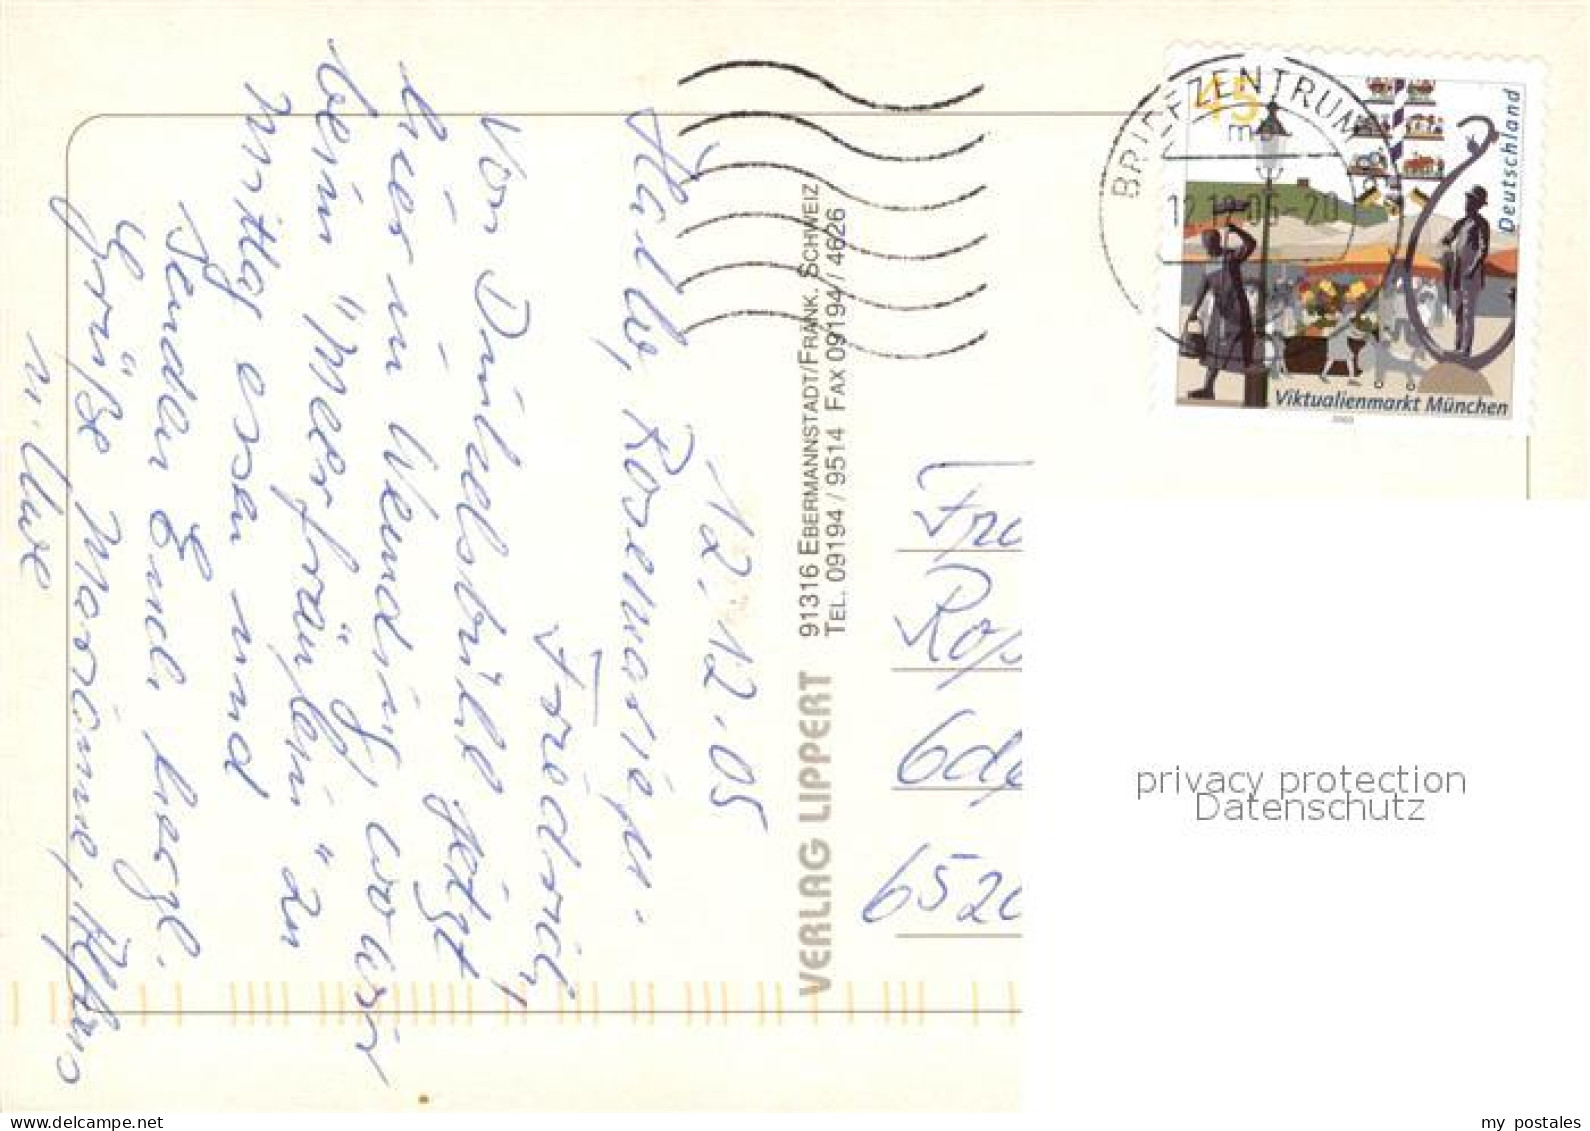 12.12.05
Hallo, Rosemarie u.
Friedrich,
Von Dinkelsbühl jetzt
hier in Wemding, wo wir
beim "Meerfräulein" zu
Mittag essen und
senden Euch herzl.
Grüße Marianne,
u. Uwe
VERLAG LIPPERT
91316 EBERMANNSTADT/FRÄNK. SCHWEIZ
TEL. 09194 / 9514 FAX 09194 / 4626
BRIEFZENTRUM
12.12.05-20
45
Deutschland
Viktualienmarkt München
2003
652
privacy protection
Datenschutz
my postales